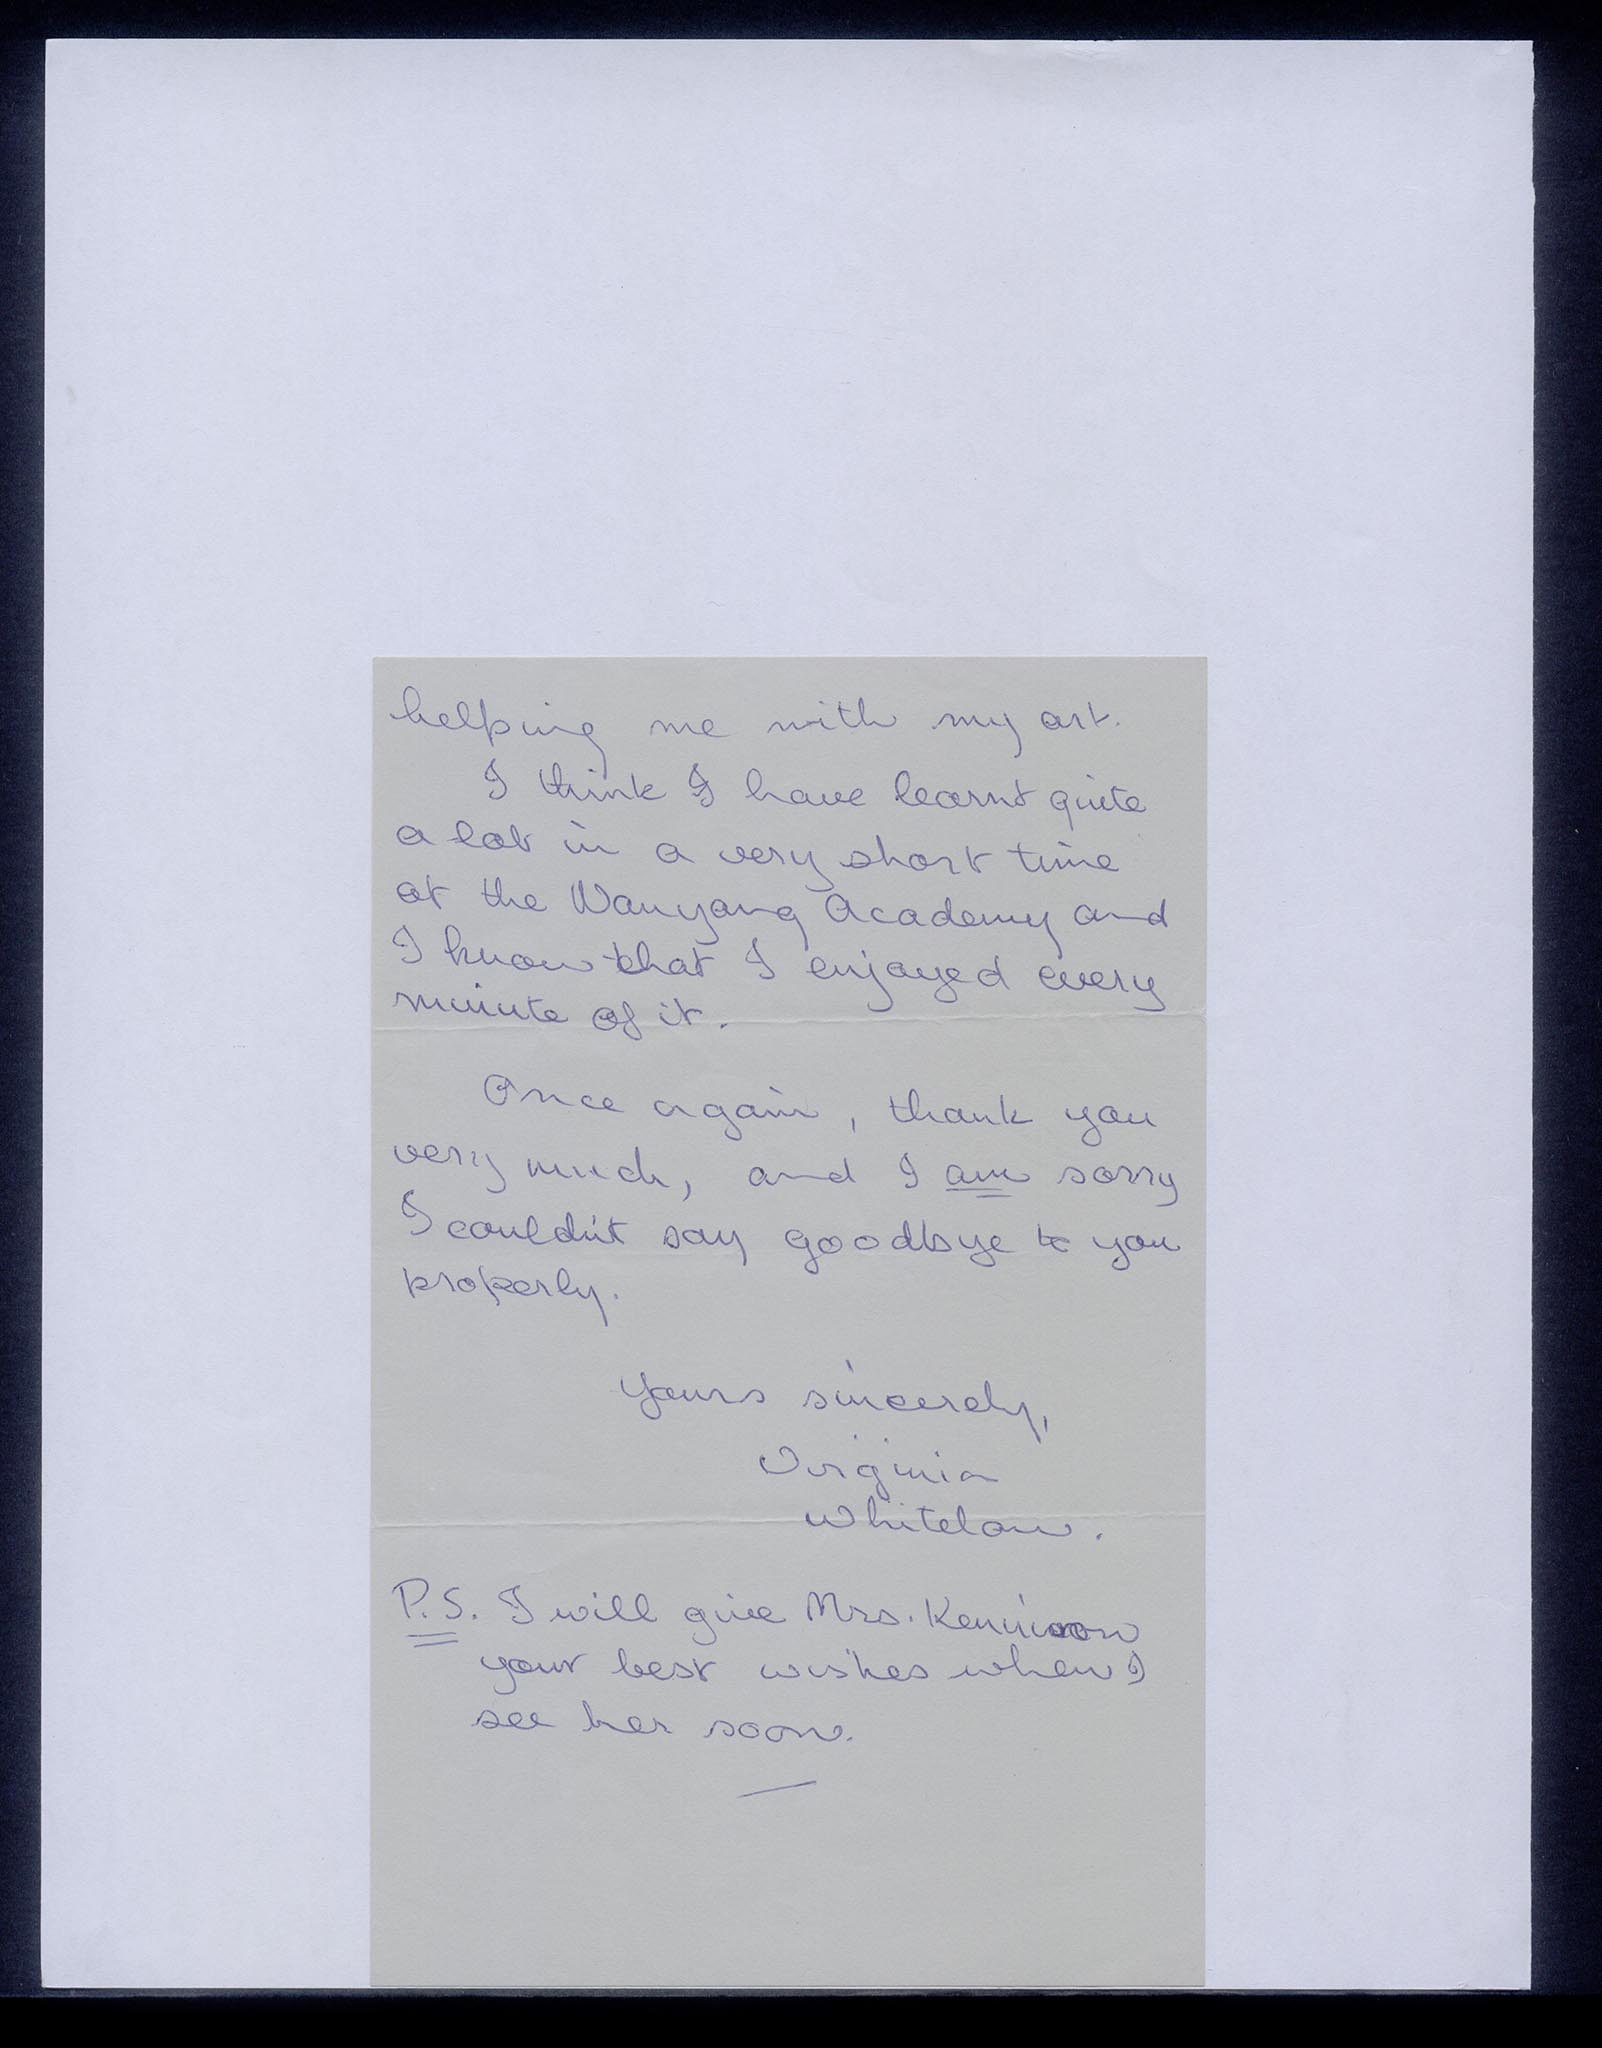 helping me with my art.
I think I have learnt quite
a lot in a very short time
at the Nanyang Academy and
I know that I enjoyed every
minute of it.
Once again, thank you
very much, and I am sorry
I couldn't say goodbye to you
properly.
Yours sincerely,
Virginia
Whitelaw.
P.S. I will give Mrs.
your best wishes when I
see her soon.